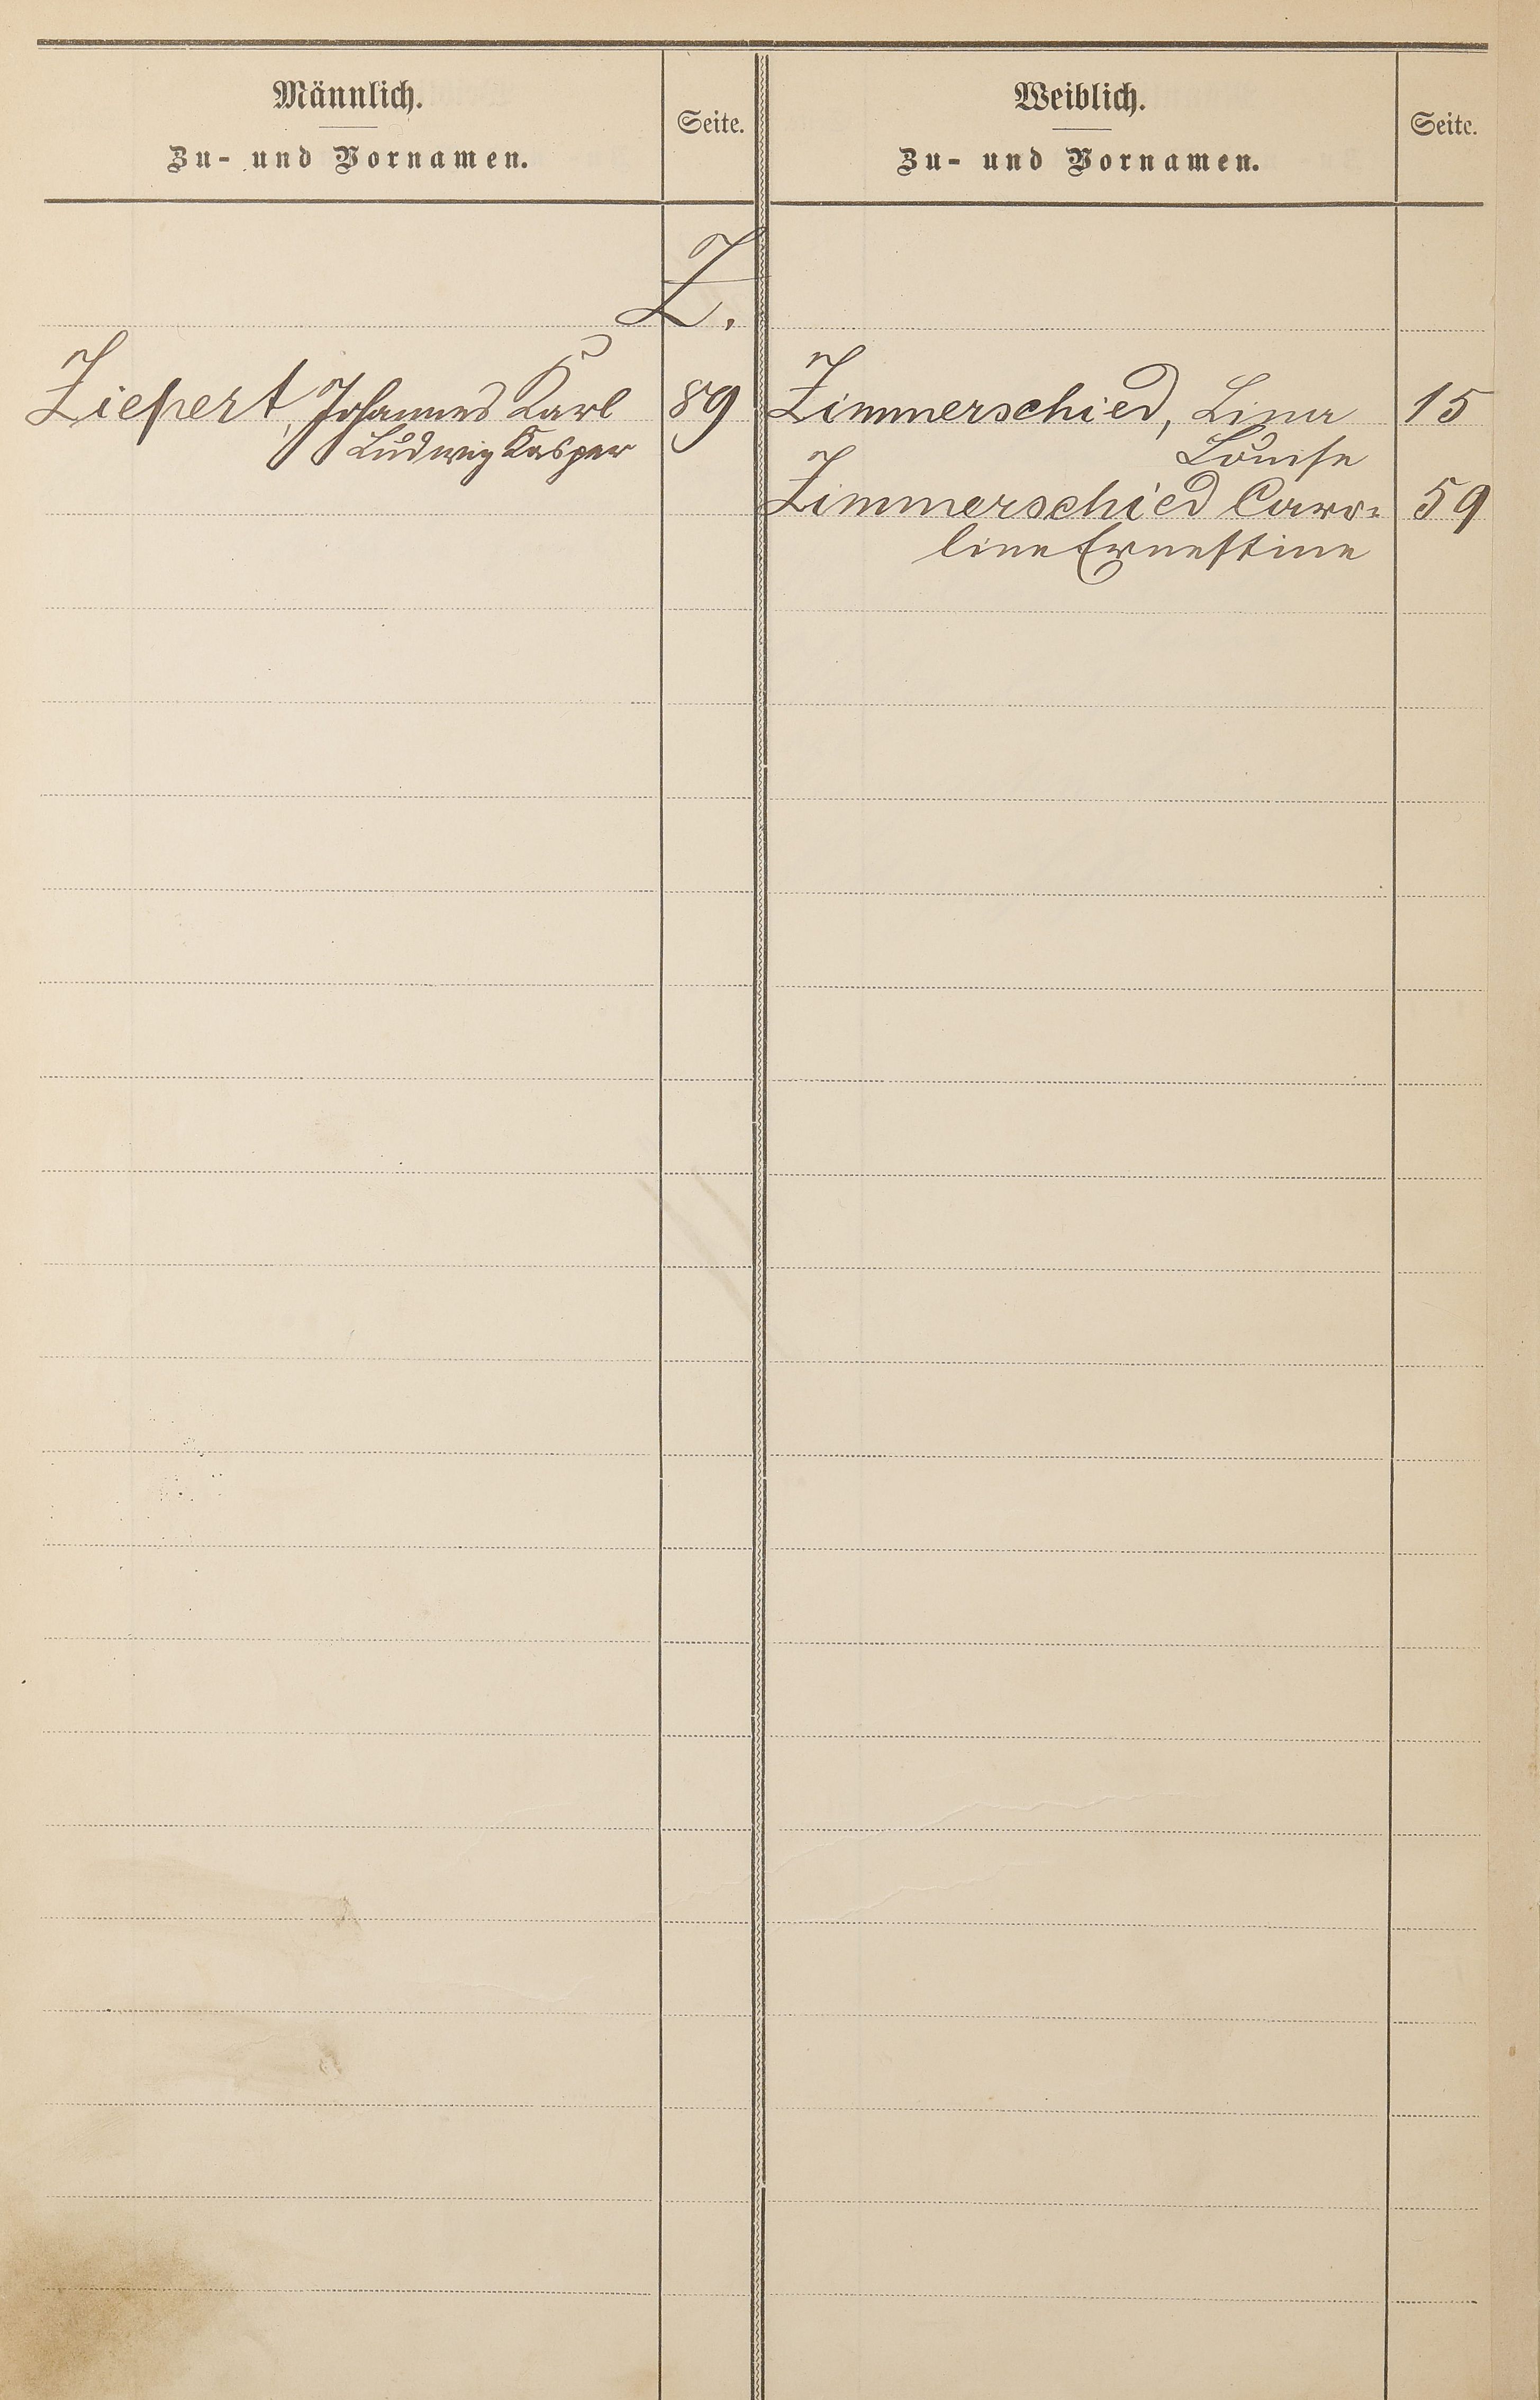 Männlich.
Zu- und Vornamen.
Seite.
Weiblich.
Zu- und Vornamen.
Seite.
Z.
Ziepert, Johannes Karl 89
Ludwig Kasper
Zimmerschied, Lina 15
Louise
Zimmerschied Caro=
line Ernestine
59